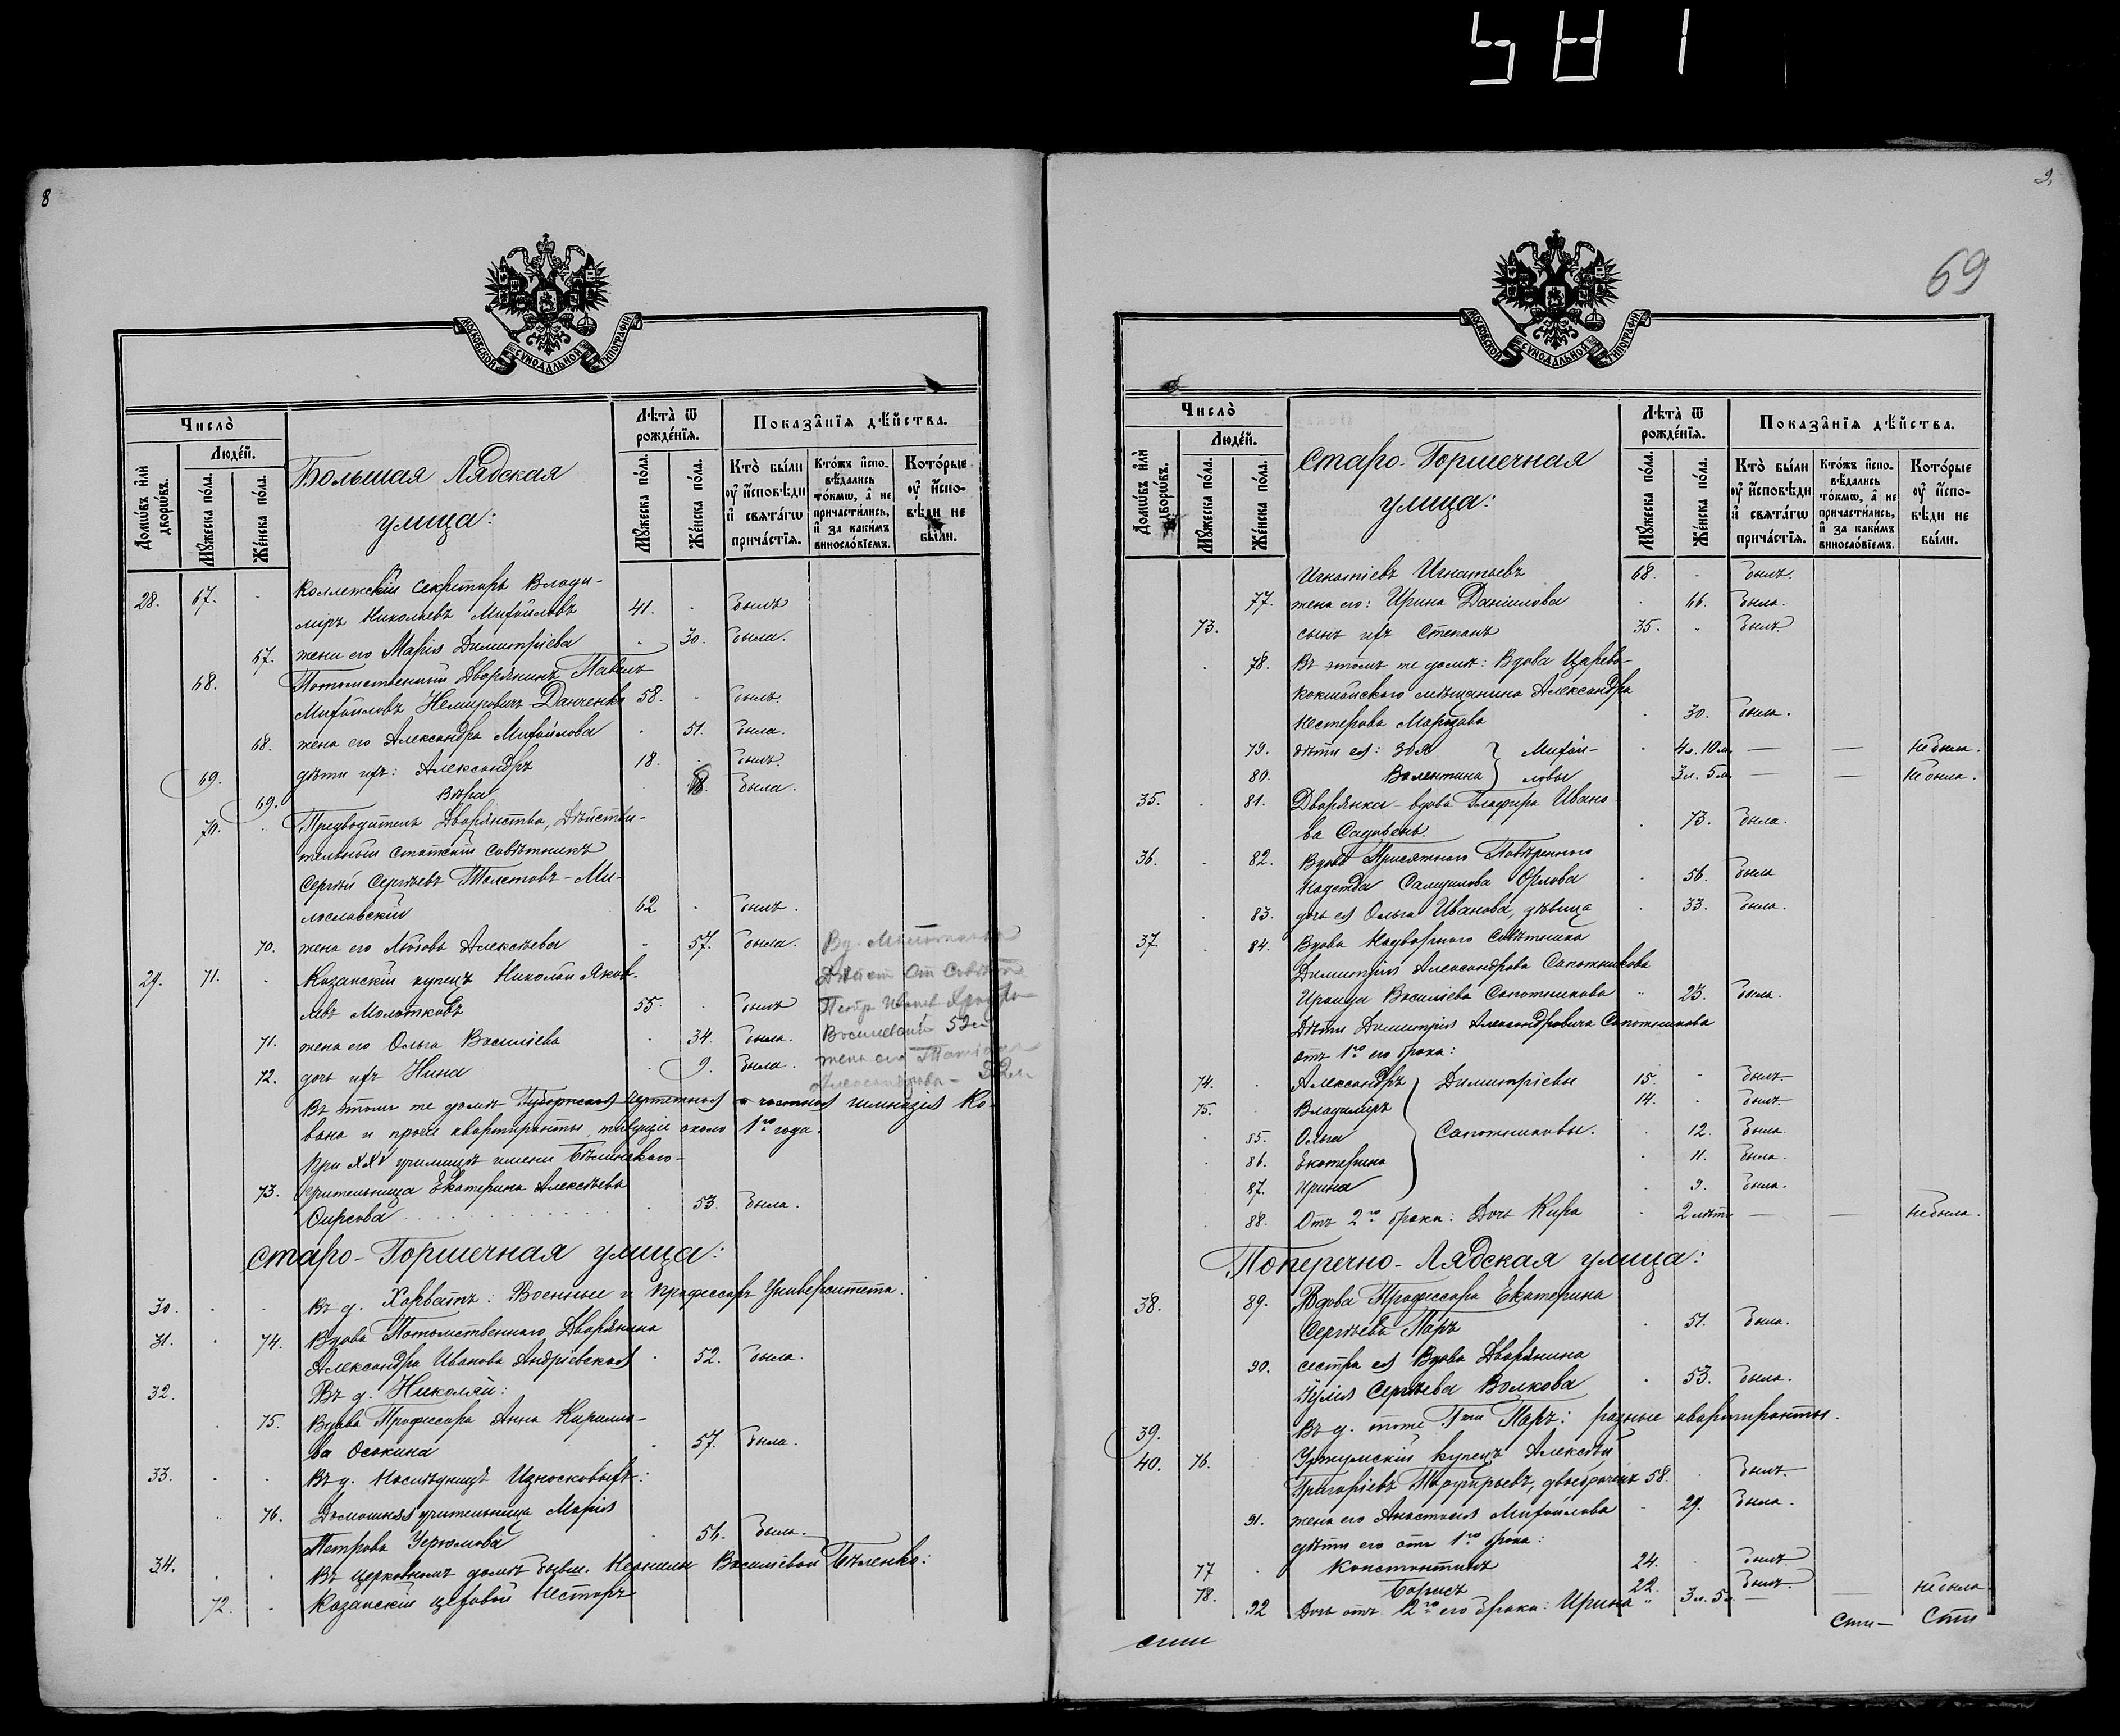 581
8
МОСКОВСКОЙ СѴНОДАЛЬНОЙ ТИПОГРАФІИ
Число̀
Домѡ́въ и҆лѝ дворѡ́въ.
Люде́й.
Мꙋ́жеска по́ла.
Же́нска по́ла.
Большая Лядская
улица:
Лѣта̀ ѿ рожде́нїѧ.
Мꙋ́жеска по́ла.
Же́нска по́ла.
Показа̑нїѧ дѣ́йства.
Кто̀ бы́ли ᲂу҆ и҆сповѣди и҆ свѧта́гѡ прича́стїѧ.
Кто́жъ и҆спо-вѣдались то́кмѡ, а҆ не причасти́лись, и҆ за каки́мъ винослѡ́вїемъ.
Кото́рые ᲂу҆ и҆спо-вѣди не бы́ли.
28. 67. Коллежскій Секретарь Влади-
міръ Николаевъ Михайловъ 41. былъ
67. жена его Марія Димитріева 30. была.
68. Потомственный Дворянинъ Павелъ
Михайловъ Немировичъ-Данченко 58. былъ.
68. жена его Александра Михайлова 51. была.
69. дѣти ихъ: Александръ 18. былъ.
69. Вѣра была.
70. Предводитель Дворянства, Дѣйстви-
тельный Статскій Совѣтникъ
Сергѣй Сергѣевъ Толстовъ-Ми-
лославскій 62 былъ.
70. жена его Любовь Алексѣева 57. была.
29. 71. Казанскій купецъ Николай Яков-
левъ Молотковъ 55. былъ
71. жена его Ольга Василіева 34. была.
72. дочь ихъ Нина 9. была.
Дѣйст Ст Совѣт
Петр Иванов
52 л
жена его Татіана
Александрова
Въ томъ же домѣ частная гимназія Ко-
вана и прочіе квартиранты живущіе около 1го года.
При XXV училищѣ имени Бѣлинскаго-
73. Учительница Екатерина Алексѣева
Фирсова 53. была.
Старо-Горшечная улица:
30. Въ д. Хорватъ: Военные и профессоръ Университета.
31. 74. Вдова Потомственнаго Дворянина
Александра Иванова Андріевская 52. была.
32. Въ д. Николаи:
75. Вдова Профессора Анна Кирилло-
ва Осокина 57. была.
33. Въ д. Наслѣдницъ Износковыхъ:
76. Домашняя учительница Марія
Петрова 56. была.
34. Въ церковномъ домѣ бывш. Василіевой Бѣленко:
72. Казанскій цеховой Несторъ
9.
69
МОСКОВСКОЙ СѴНОДАЛЬНОЙ ТИПОГРАФІИ
Число̀
Домѡ́въ и҆лѝ дворѡ́въ.
Люде́й.
Мꙋ́жеска по́ла.
Же́нска по́ла.
Старо-Горшечная
улица:
Лѣта̀ ѿ рожде́нїѧ.
Мꙋ́жеска по́ла.
Же́нска по́ла.
Показа̑нїѧ дѣ́йства.
Кто̀ бы́ли ᲂу҆ и҆сповѣди и҆ свѧта́гѡ прича́стїѧ.
Кто́жъ и҆спо-вѣдались то́кмѡ, а҆ не причасти́лись, и҆ за каки́мъ винослѡ́вїемъ.
Кото́рые ᲂу҆ и҆спо-вѣди не бы́ли.
Игнатіевъ Игнатьевъ 68. былъ.
77. жена его: Ирина Даніилова 66. была.
73. сынъ ихъ Степанъ 35. былъ.
78. Въ этомъ же домѣ: Вдова Царево-
кокшайскаго мѣщанина Александра
Нестерова 30. была.
79. дѣти ея: Зоя } Михай- 4 л. 10 м. — — Не была.
80. Валентина } ловы 3 л. 5 м. — — Не была.
35. 81. Дворянка-вдова Глафира Ивано-
ва Садовень. 73. была.
36. 82. Вдова Присяжнаго Повѣреннаго
Надежда Самуилова Орлова 56. была
83. дочь ея Ольга Иванова, дѣвица 33. была.
37. 84. Вдова Надворнаго Совѣтника
Димитрія Александрова Сапожникова
Ираида Василіева Сапожникова 23. была.
Дѣти Димитрія Александровича Сапожникова
отъ 1го его брака:
74. Александръ } Димитріевы 15. былъ.
75. Владиміръ 14. былъ.
85. Ольга } Сапожниковы. 12. была.
86. Екатерина 11. была.
87. Ирина 9. была.
88. Отъ 2го брака: Дочь Кира 2 лѣтъ — — Не была.
Поперечно-Лядская улица:
38. 89. Вдова Профессора Екатерина
Сергѣева Паръ 51. была.
90. сестра ея Вдова Дворянина
Юлія Сергѣева Волкова 53. была.
39. Въ д. тоже Паръ: разные квартиранты.
40. 76. Уржумскій купецъ Алексѣй
Григоріевъ Порфирьевъ, двоебраченъ 58. былъ.
91. жена его Анастасія Михайлова 29. была.
дѣти его отъ 1го брака:
77 Константинъ 24. былъ
78. Борисъ 22. былъ.
92 Дочь отъ 2го его брака: Ирина 3 л. 5 м. — не была